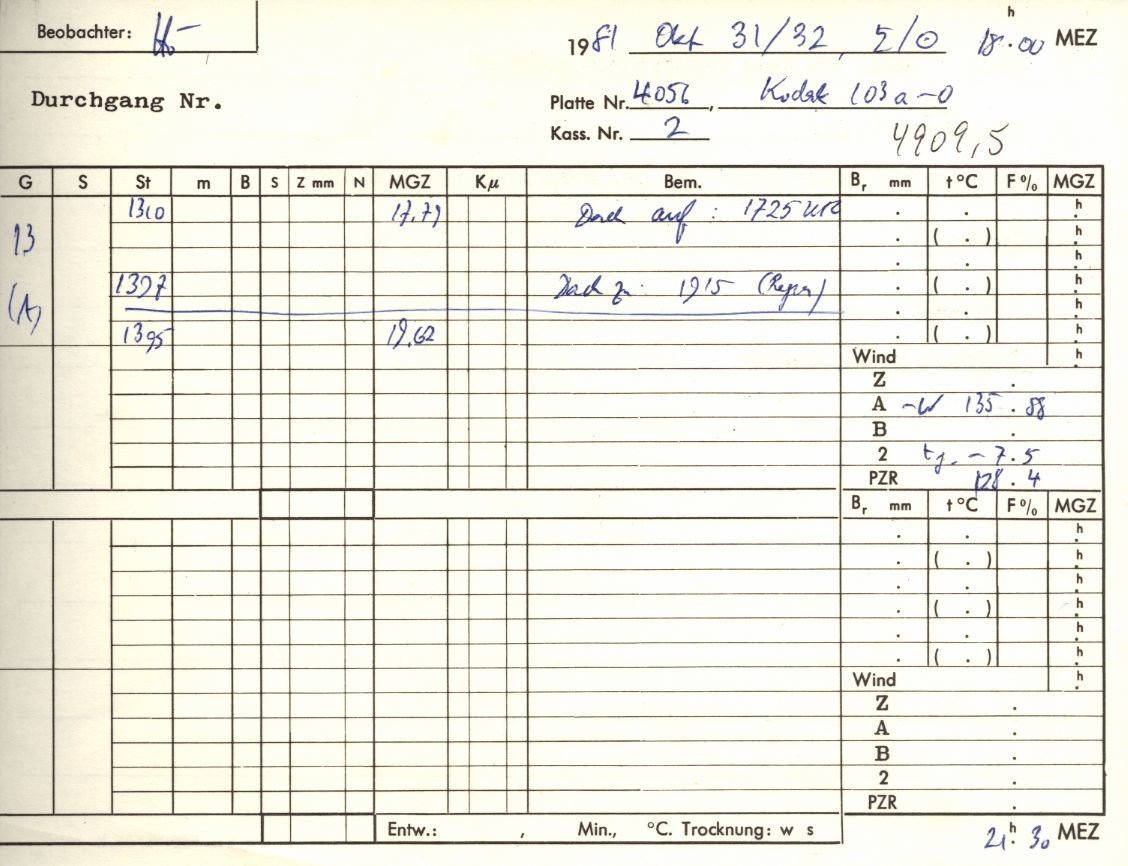 Beobachter: H-
1981 Okt 31/32, Σ/⊙ 18h.00 MEZ
Durchgang Nr.
Platte Nr. 4056, Kodak 103a-O
Kass. Nr. 2
4909,5
G S St m B S Z mm N MGZ Kμ Bem. Br mm t°C F% MGZ
1310 17.79 Dach auf: 1725 . . h
13 . ( . ) h
. . h
1397 Dach zu: 1915 (Regen) . ( . ) h
(A) . . h
1395 19.62 . ( . ) h
Wind h
Z .
A -W 135.88
B .
2 -7.5
PZR 128.4
Br mm t°C F% MGZ
. . h
. ( . ) h
. . h
. ( . ) h
. . h
. ( . ) h
Wind h
Z .
A .
B .
2 .
PZR .
Entw.: , Min., °C. Trocknung: w s
21h.30 MEZ